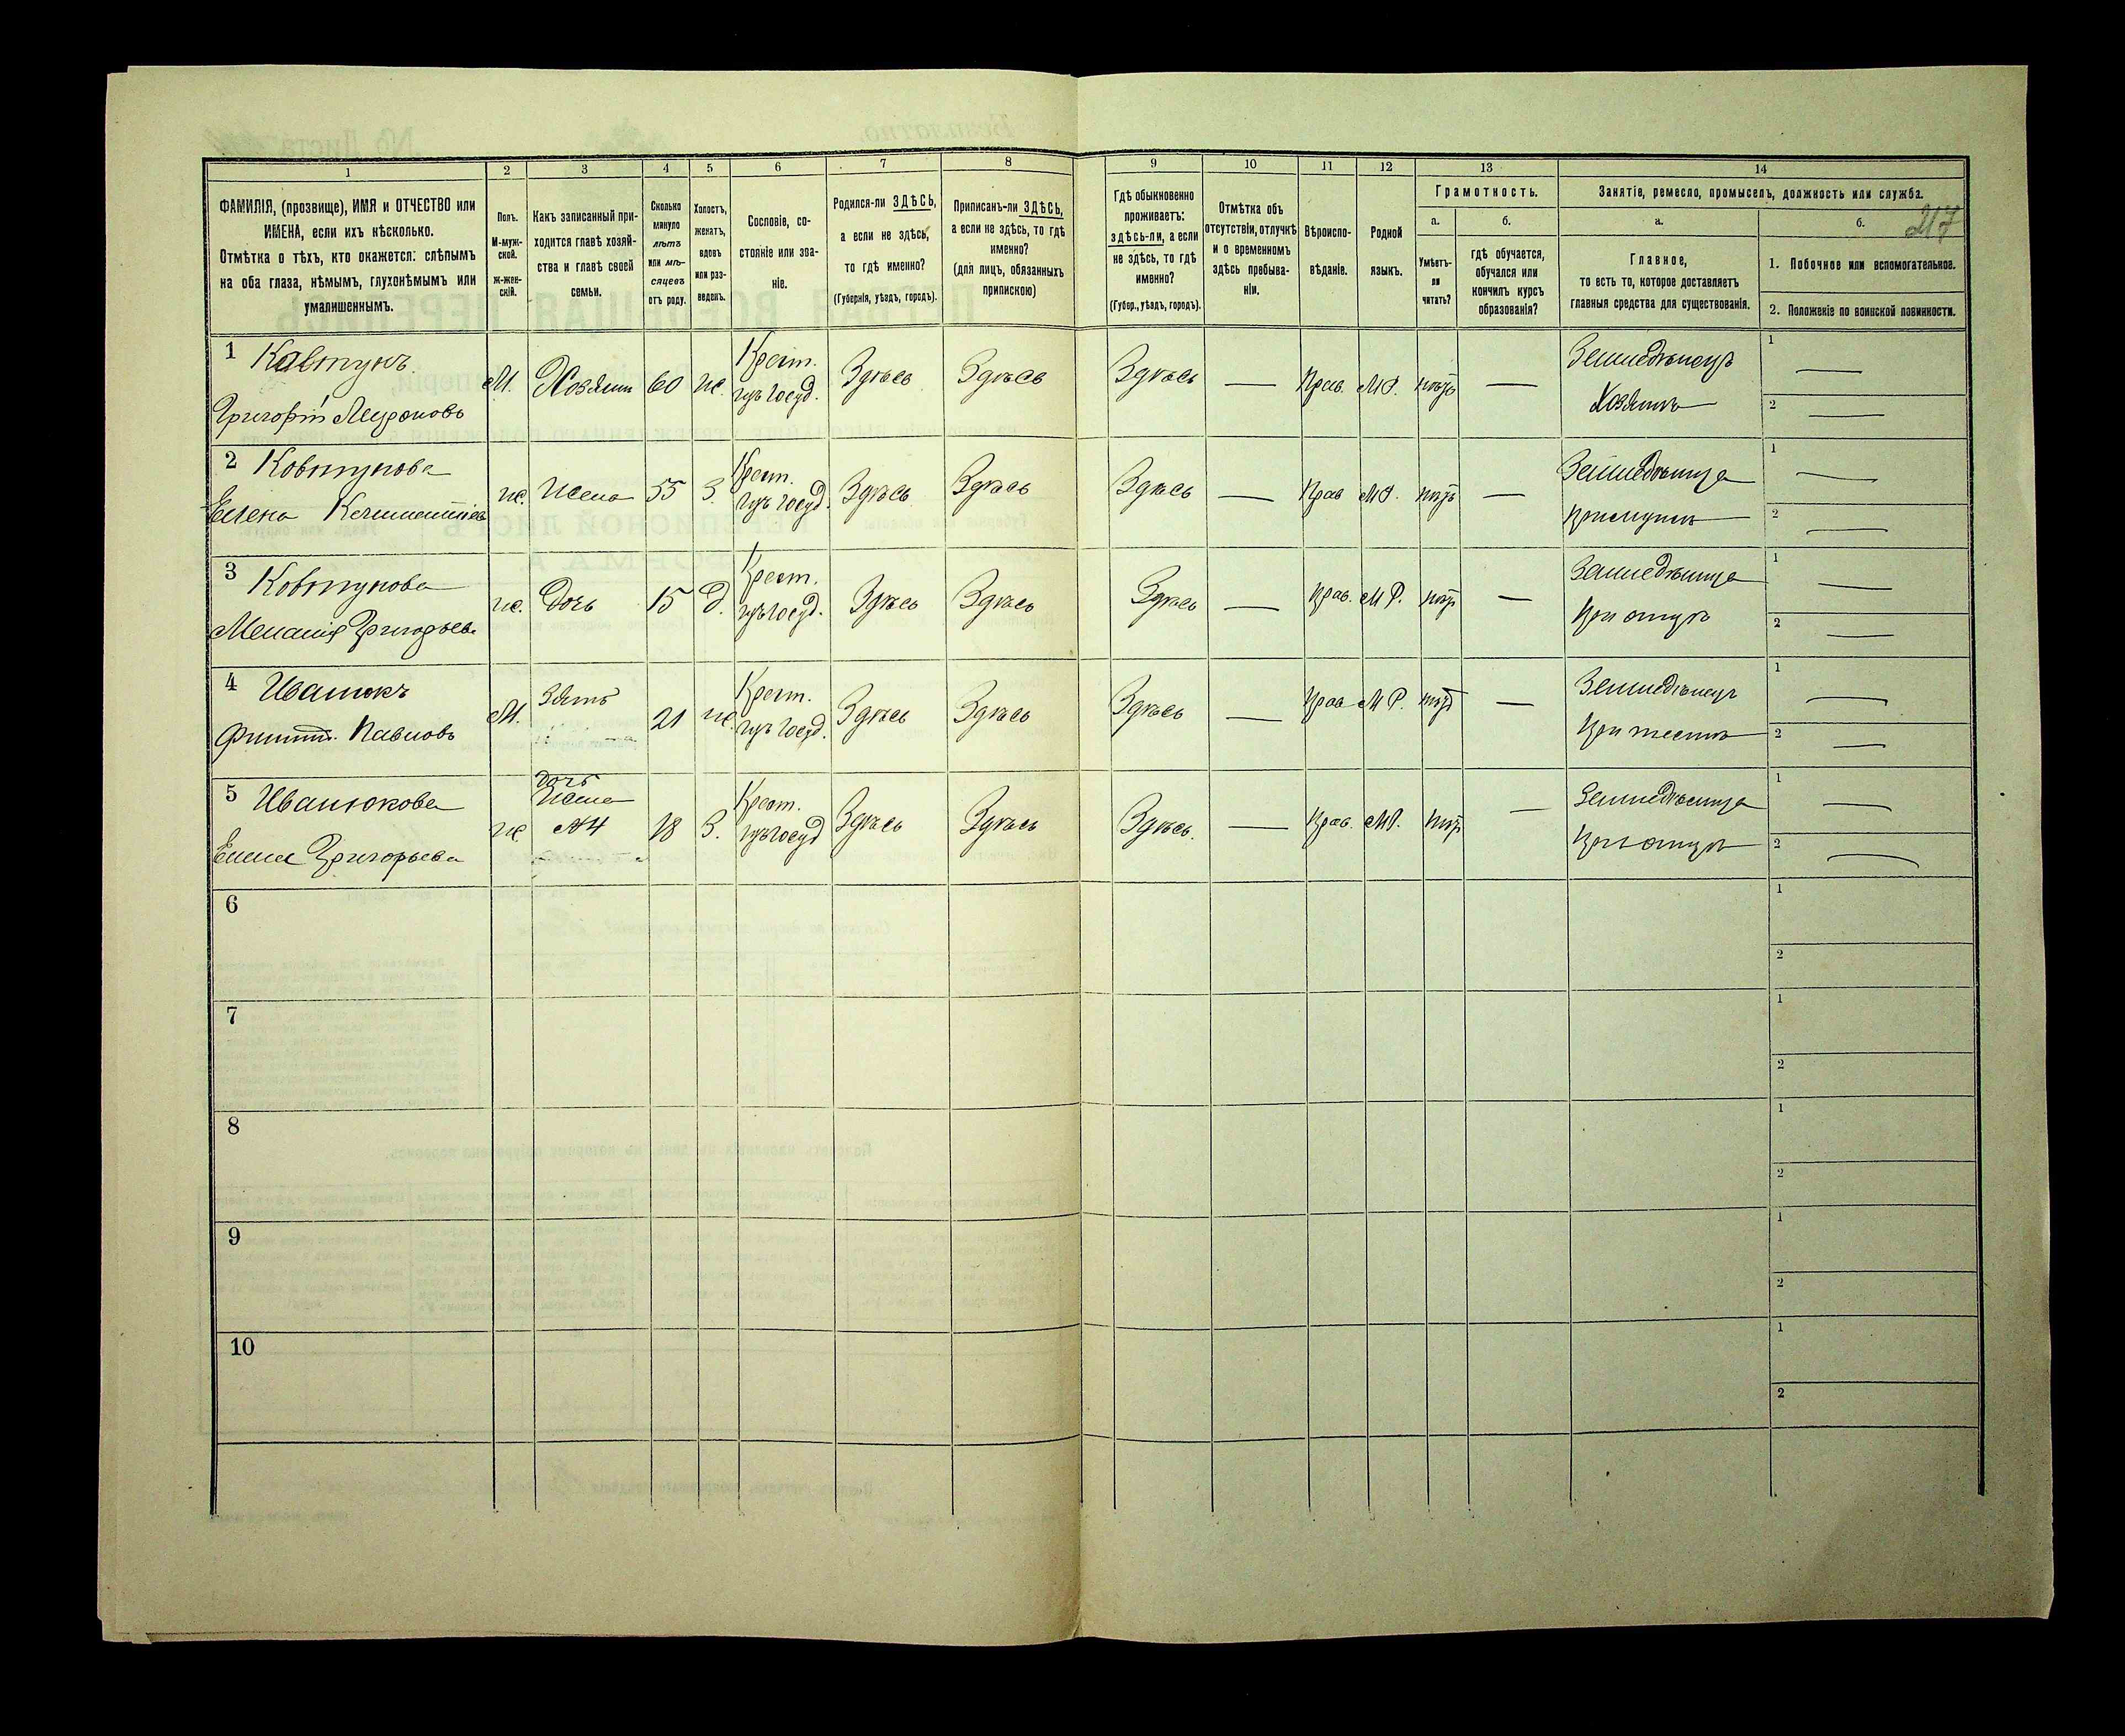 217
1 2 3 4 5 6 7 8 9 10 11 12 13 14
ФАМИЛІЯ, (прозвище), ИМЯ и ОТЧЕСТВО или
ИМЕНА, если ихъ нѣсколько.
Отмѣтка о тѣхъ, кто окажется: слѣпымъ
на оба глаза, нѣмымъ, глухонѣмымъ или
умалишеннымъ.
Полъ.
М-муж-
ской.
Ж-жен-
скій.
Какъ записанный при-
ходится главѣ хозяй-
ства и главѣ своей
семьи.
Сколько
минуло
лѣтъ
или мѣ-
сяцевъ
отъ роду.
Холостъ,
женатъ,
вдовъ
или раз-
веденъ.
Сословіе, со-
стояніе или зва-
ніе.
Родился-ли ЗДѢСЬ,
а если не здѣсь,
то гдѣ именно?
(Губернія, уѣздъ, городъ).
Приписанъ-ли ЗДѢСЬ,
а если не здѣсь, то гдѣ
именно?
(для лицъ, обязанныхъ
припискою)
Гдѣ обыкновенно
проживаетъ:
здѣсь-ли, а если
не здѣсь, то гдѣ
именно?
(Губер., уѣздъ, городъ).
Отмѣтка объ
отсутствіи, отлучкѣ
и о временномъ
здѣсь пребыва-
ніи.
Вѣроиспо-
вѣданіе.
Родной
языкъ.
Грамотность.
а.
Умѣетъ-
ли
читать?
б.
гдѣ обучается,
обучался или
кончилъ курсъ
образованія?
Занятіе, ремесло, промыселъ, должность или служба.
а.
Главное,
то есть то, которое доставляетъ
главныя средства для существованія.
б.
1. Побочное или вспомогательное.
2. Положеніе по воинской повинности.
1 Кавтунъ
Григорій Мироновъ
М. Хозяинъ 60 ж. Крест. изъ госуд. Здѣсь Здѣсь Здѣсь — Прав. М.Р. нѣтъ — Земледѣлецъ
Хозяинъ
1 —
2 —
2 Ковтунова
Елена
ж. Жена 55 З. Крест. изъ госуд. Здѣсь Здѣсь Здѣсь — Прав М.Р. нѣтъ — Земледѣлица
при мужѣ
1 —
2 —
3 Ковтунова
Меланія Григорьева
ж. Дочь 15 д. Крест. изъ госуд. Здѣсь Здѣсь Здѣсь — Прав. М.Р. нѣтъ — Земледѣлица
при отцѣ
1 —
2 —
4 Иванюкъ
Филипп. Павловъ
М. Зять 21 ж. Крест. изъ госуд. Здѣсь Здѣсь Здѣсь — Прав М.Р. нѣтъ — Земледѣлецъ
при тестѣ
1 —
2 —
5 Иванюкова
Елена Григорьева
ж. дочь
Жена
№4
18 З. Крест. изъ госуд Здѣсь Здѣсь Здѣсь. — Прав. М.Р. нѣтъ — Земледѣлица
при отцѣ
1 —
2 —
6
1
2
7
1
2
8
1
2
9
1
2
10
1
2